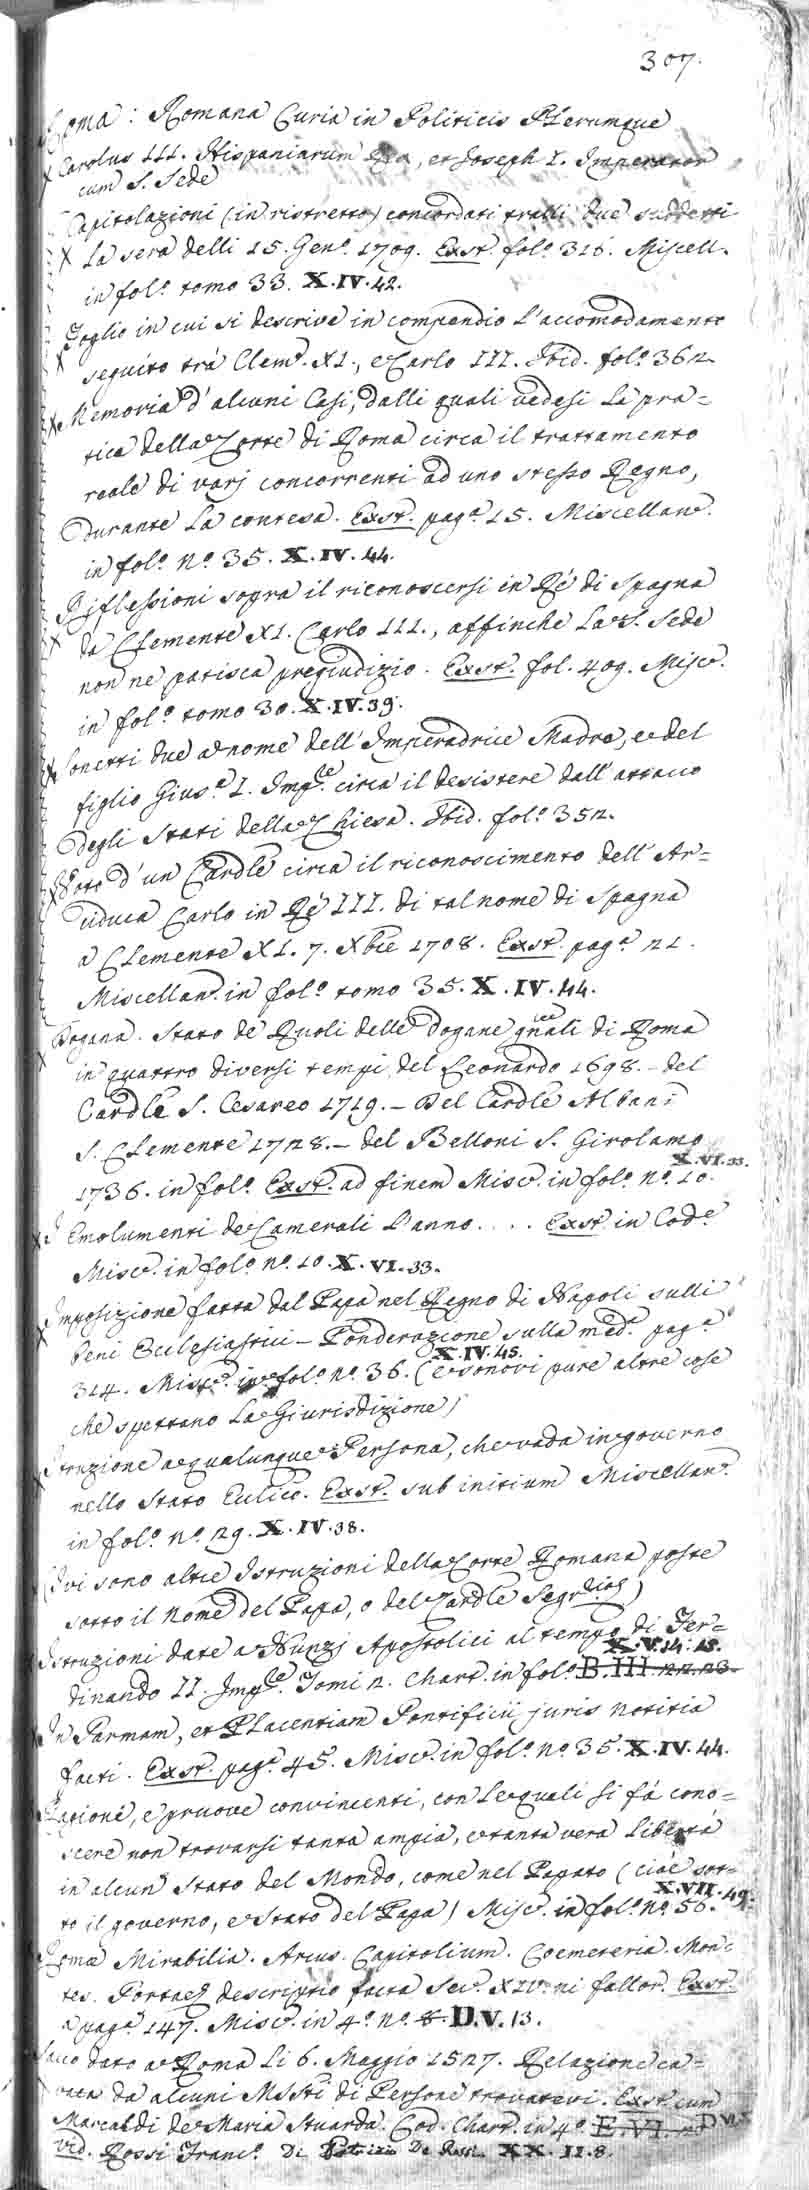 307.
Roma: Romana Curia in Politicis Plerumque
Carolus III. Hispaniarum Rex, et Joseph I. Imperator
cum S. Sede
Capitolazioni (in ristretto) concordati tralli due suddetti
la sera delli 15. Gen.º 1709. Exst. fol.º 316. Miscell.
in fol.º tomo 33. X.IV.42.
Foglio in cui si descrive in compendio l'accomodamento
seguito trà Clem.e XI., e Carlo III. Ibid. fol.º 362.
Memoria d'alcuni Casi, dalli quali vedesi la pra=
tica della Corte di Roma circa il trattamento
reale di varj concorrenti ad uno stesso Regno,
durante la contesa. Exst. pag.ª 15. Miscellan.
in fol.º n.º 35. X.IV.44.
Riflessioni sopra il riconoscersi in Ré di Spagna
da Clemente XI. Carlo III., affinche la S. Sede
non ne patisca pregiudizio. Exst. fol. 409. Misc.
in fol.º tomo 30. X.IV.39.
Sonetti due a nome dell'Imperadrice Madre, e del
figlio Gius.e I. Imp.le circa il desistere dall'attacco
degli stati della Chiesa. Ibid. fol.º 352.
Voto d'un Cardle circa il riconoscimento dell'Ar=
ciduca Carlo in Ré III. di tal nome di Spagna
a Clemente XI. 7. Xbre 1708. Exst. pag.ª 21.
Miscellan. in fol.º tomo 35. X.IV.44.
Dogana. Stato de Ruoli delle dogane gnãli di Roma
in quattro diversi tempi, del Leonardo 1698. - del
Cardle S. Cesareo 1719. - Del Cardle Albani
S. Clemente 1728. - del Belloni S. Girolamo
1736. in fol.º Exst. ad finem Misc. in fol.º n.º 10. X.VI.33.
Emolumenti de Camerali l'anno . . . . Exst. in Cod.e
Misc. in fol.º n.º 10. X.VI.33.
Imposizione fatta dal Papa nel Regno di Napoli sulli
beni Ecclesiastici - Ponderazione sulla med.ª pag.ª
314. Misc. in fol.º n.º 36. X.IV.45. (e sonovi pure altre cose
che spettano la Giurisdizione)
Istruzione a qualunque Persona, che vada in governo
nello stato Eccl.ico. Exst. sub initium Miscellan.
in fol.º n.º 29. X.IV.38.
(Ivi sono altre Istruzioni della Corte Romana poste
sotto il nome del Papa, o del Cardle Segr.rio)
Istruzioni date a Nunzj Apostolici al tempo di Fer=
dinando II. Imp.le. Tomi 2. chart. in fol.º B.III.22.23. X.V.14.15.
In Parmam, et Placentiam Pontificii juris notitia
facti. Exst. pag.ª 45. Misc. in fol.º n.º 35. X.IV.44.
Ragioni, e pruove convincenti, con le quali si fá cono=
scere non trovarsi tanta ampia, e tanta vera libertá
in alcun stato del Mondo, come nel Papato (cioè sot=
to il governo, e stato del Papa) Misc. in fol.º n.º 56. X.VII.49.
Romæ Mirabilia. Arcus. Capitolium. Coemeteria. Mon=
tes. Portae descriptio facta Sec. XIV. ni fallor. Exst.
a pag.ª 147. Misc. in 4.º n.º 8. D.V.13.
Sacco dato a Roma li 6. Maggio 1527. Relazione ca=
vata da alcuni MSSti di Persone trovatevi. Exst. cum
Marcaldi de Maria Stuarda. Cod. Chart. in 4.º E.VI.
vid. Rossi Franc.º Di Patrizio De Rossi. XX.II.8.